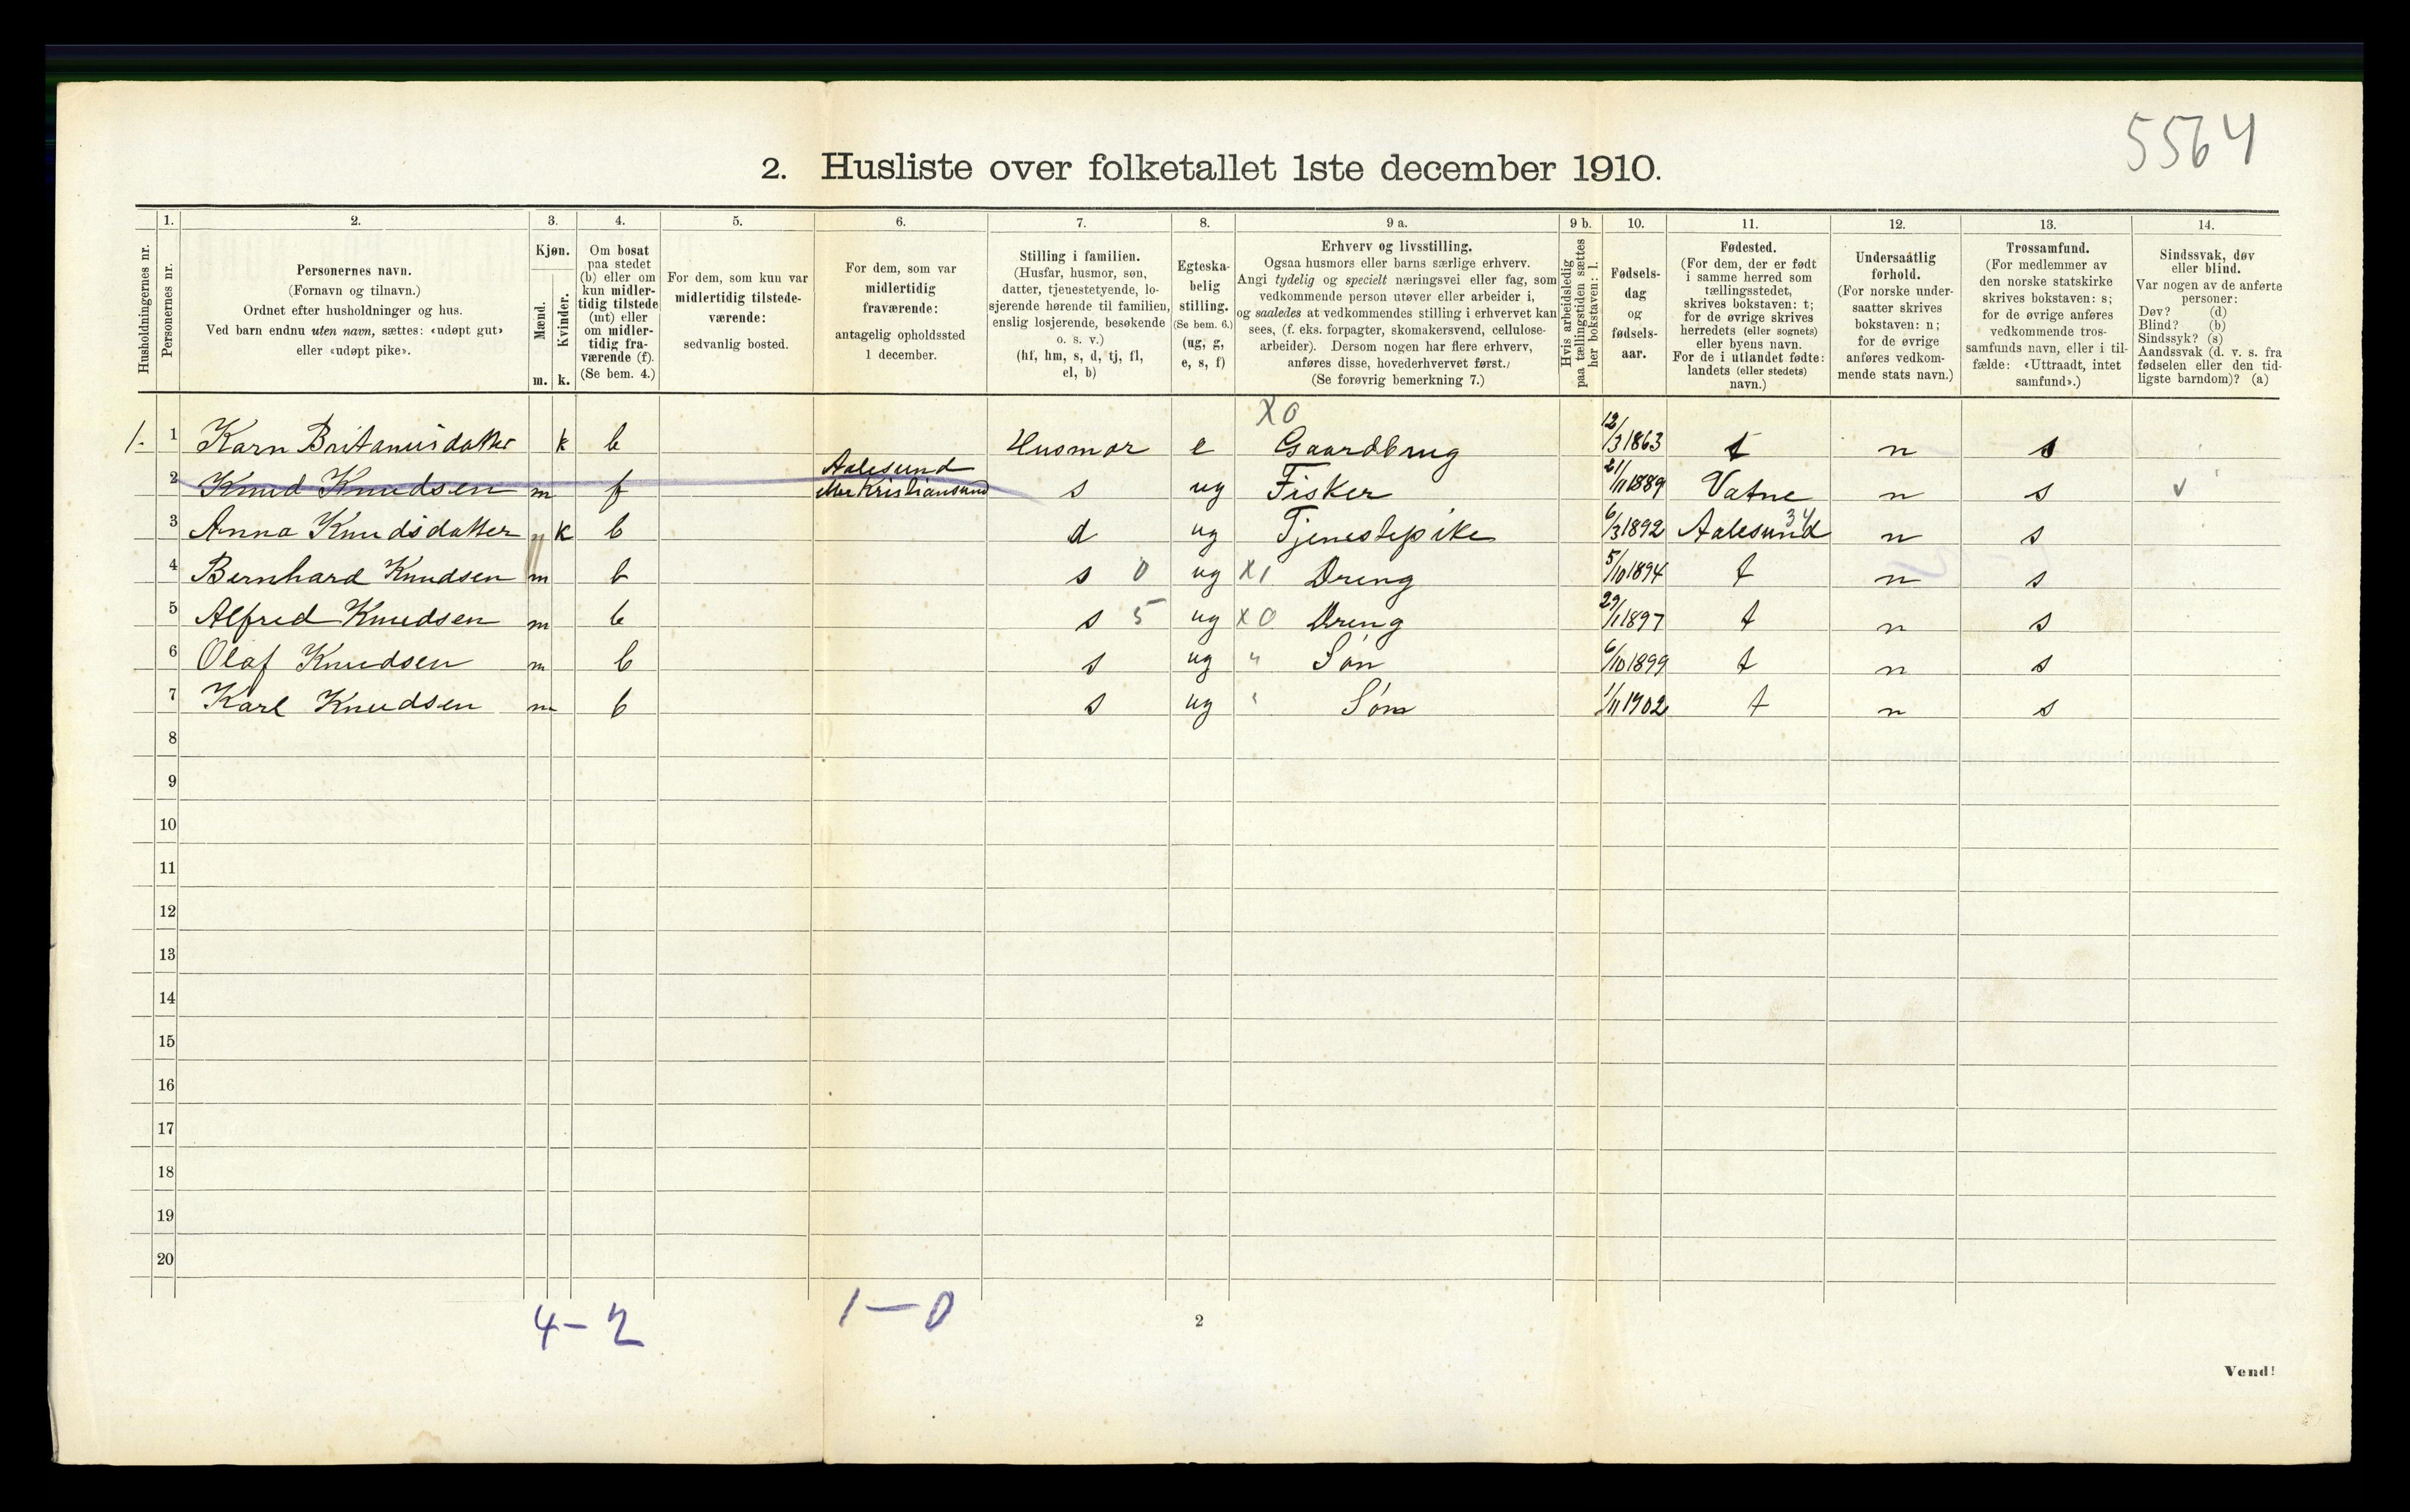 5564
2. Husliste over folketallet 1ste december 1910.
Husholdningernes nr.
1.
Personernes nr.
2.
Personernes navn.
(Fornavn og tilnavn.)
Ordnet efter husholdninger og hus.
Ved barn endnu uten navn, sættes: «udøpt gut»
eller «udøpt pike».
3.
Kjøn.
Mænd.
Kvinder.
m. k.
4.
Om bosat
paa stedet
(b) eller om
kun midler-
tidig tilstede
(mt) eller
om midler-
tidig fra-
værende (f).
(Se bem. 4.)
5.
For dem, som kun var
midlertidig tilstede-
værende:
sedvanlig bosted.
6.
For dem, som var
midlertidig
fraværende:
antagelig opholdssted
1 december.
7.
Stilling i familien.
(Husfar, husmor, søn,
datter, tjenestetyende, lo-
sjerende hørende til familien,
enslig losjerende, besøkende
o. s. v.)
(hf, hm, s, d, tj, fl,
el, b)
8.
Egteska-
belig
stilling.
(Se bem. 6.)
(ug, g,
e, s, f)
9 a.
Erhverv og livsstilling.
Ogsaa husmors eller barns særlige erhverv.
Angi tydelig og specielt næringsvei eller fag, som
vedkommende person utøver eller arbeider i,
og saaledes at vedkommendes stilling i erhvervet kan
sees, (f. eks. forpagter, skomakersvend, cellulose-
arbeider). Dersom nogen har flere erhverv,
anføres disse, hovederhvervet først.
(Se forøvrig bemerkning 7.)
9 b.
Hvis arbeidsledig
paa tællingstiden sættes
her bokstaven: l.
10.
Fødsels-
dag
og
fødsels-
aar.
11.
Fødested.
(For dem, der er født
i samme herred som
tællingsstedet,
skrives bokstaven: t;
for de øvrige skrives
herredets (eller sognets)
eller byens navn.
For de i utlandet fødte:
landets (eller stedets)
navn.)
12.
Undersaatlig
forhold.
(For norske under-
saatter skrives
bokstaven: n;
for de øvrige
anføres vedkom-
mende stats navn.)
13.
Trossamfund.
(For medlemmer av
den norske statskirke
skrives bokstaven: s;
for de øvrige anføres
vedkommende tros-
samfunds navn, eller i til-
fælde: «Uttraadt, intet
samfund».)
14.
Sindssvak, døv
eller blind.
Var nogen av de anførte
personer:
Døv? (d)
Blind? (b)
Sindssyk? (s)
Aandssvak (d. v. s. fra
fødselen eller den tid-
ligste barndom)? (a)
X0
1. 1 Karn Britanusdatter k b Husmor e Gaardbrug 12/3 1863 t n s
2 Knud Knudsen m f Aalesund eller Kristiansund s ug Fisker 21/11 1889 Vatne n s v
3 Anna Knudsdatter k b d ug Tjenestepike 6/3 1892 Aalesund 34 n s
4 Bernhard Knudsen m b s 0 ug X1 Dreng 5/10 1894 t n s
5 Alfred Knudsen m b s 5 ug X0 Dreng 29/1 1897 t n s
6 Olaf Knudsen m b s ug " Søn 6/10 1899 t n s
7 Karl Knudsen m b s ug " Søn 1/11 1902 t n s
8
9
10
11
12
13
14
15
16
17
18
19
20
4 - 2 1 - 0
2
Vend!